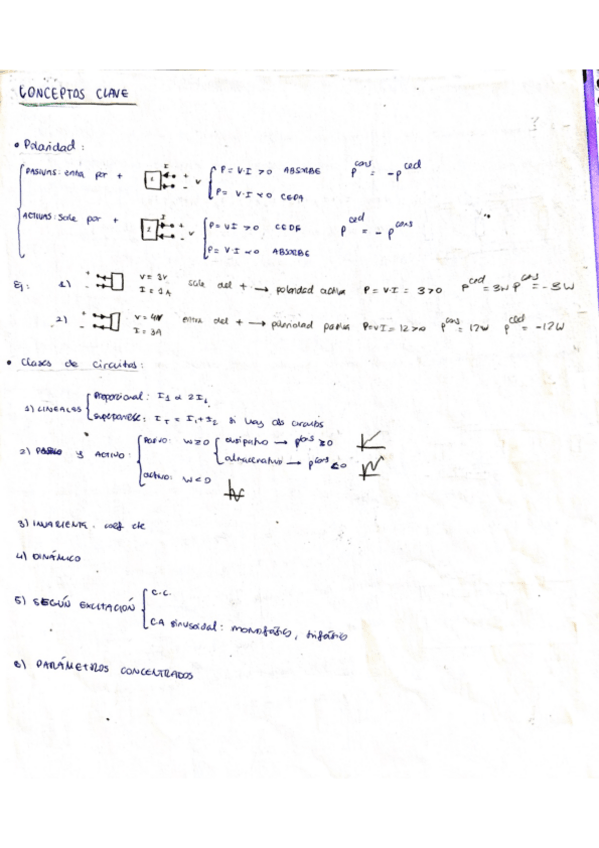 CONCEPTOS CLAVE
• Polaridad:
PASIVAS: entra por + I 1 + - V P = V·I > 0 ABSORBE P^cons = -P^ced
P = V·I < 0 CEDA
ACTIVAS: Sale por + I 1 + - V P = V·I > 0 CEDE P^ced = -P^cons
P = V·I < 0 ABSORBE
Ej: 1) + - V = 3V sale del + → polaridad activa P = V·I = 3 > 0 P^ced = 3W P^cons = -3W
I = 1A
2) + - V = 4V entra del + → polaridad pasiva P=V·I = 12 > 0 P^cons = 12W P^ced = -12W
I = 3A
• Clases de circuitos:
1) LINEALES Proporcional: I1 α 2I1
superponerse: IT = I1 + I2 si hay dos circuitos
2) PASIVO y ACTIVO: PASIVO: W≥0 disipativo → P^cons ≥0
almacenativo → P^cons ≤0
activo: W<0
3) INVARIENTE. coef cte
4) DINÁMICO
5) SEGÚN EXCITACIÓN C.C.
C.A sinusoidal: monofásicos, trifásicos
6) PARÁMETROS CONCENTRADOS